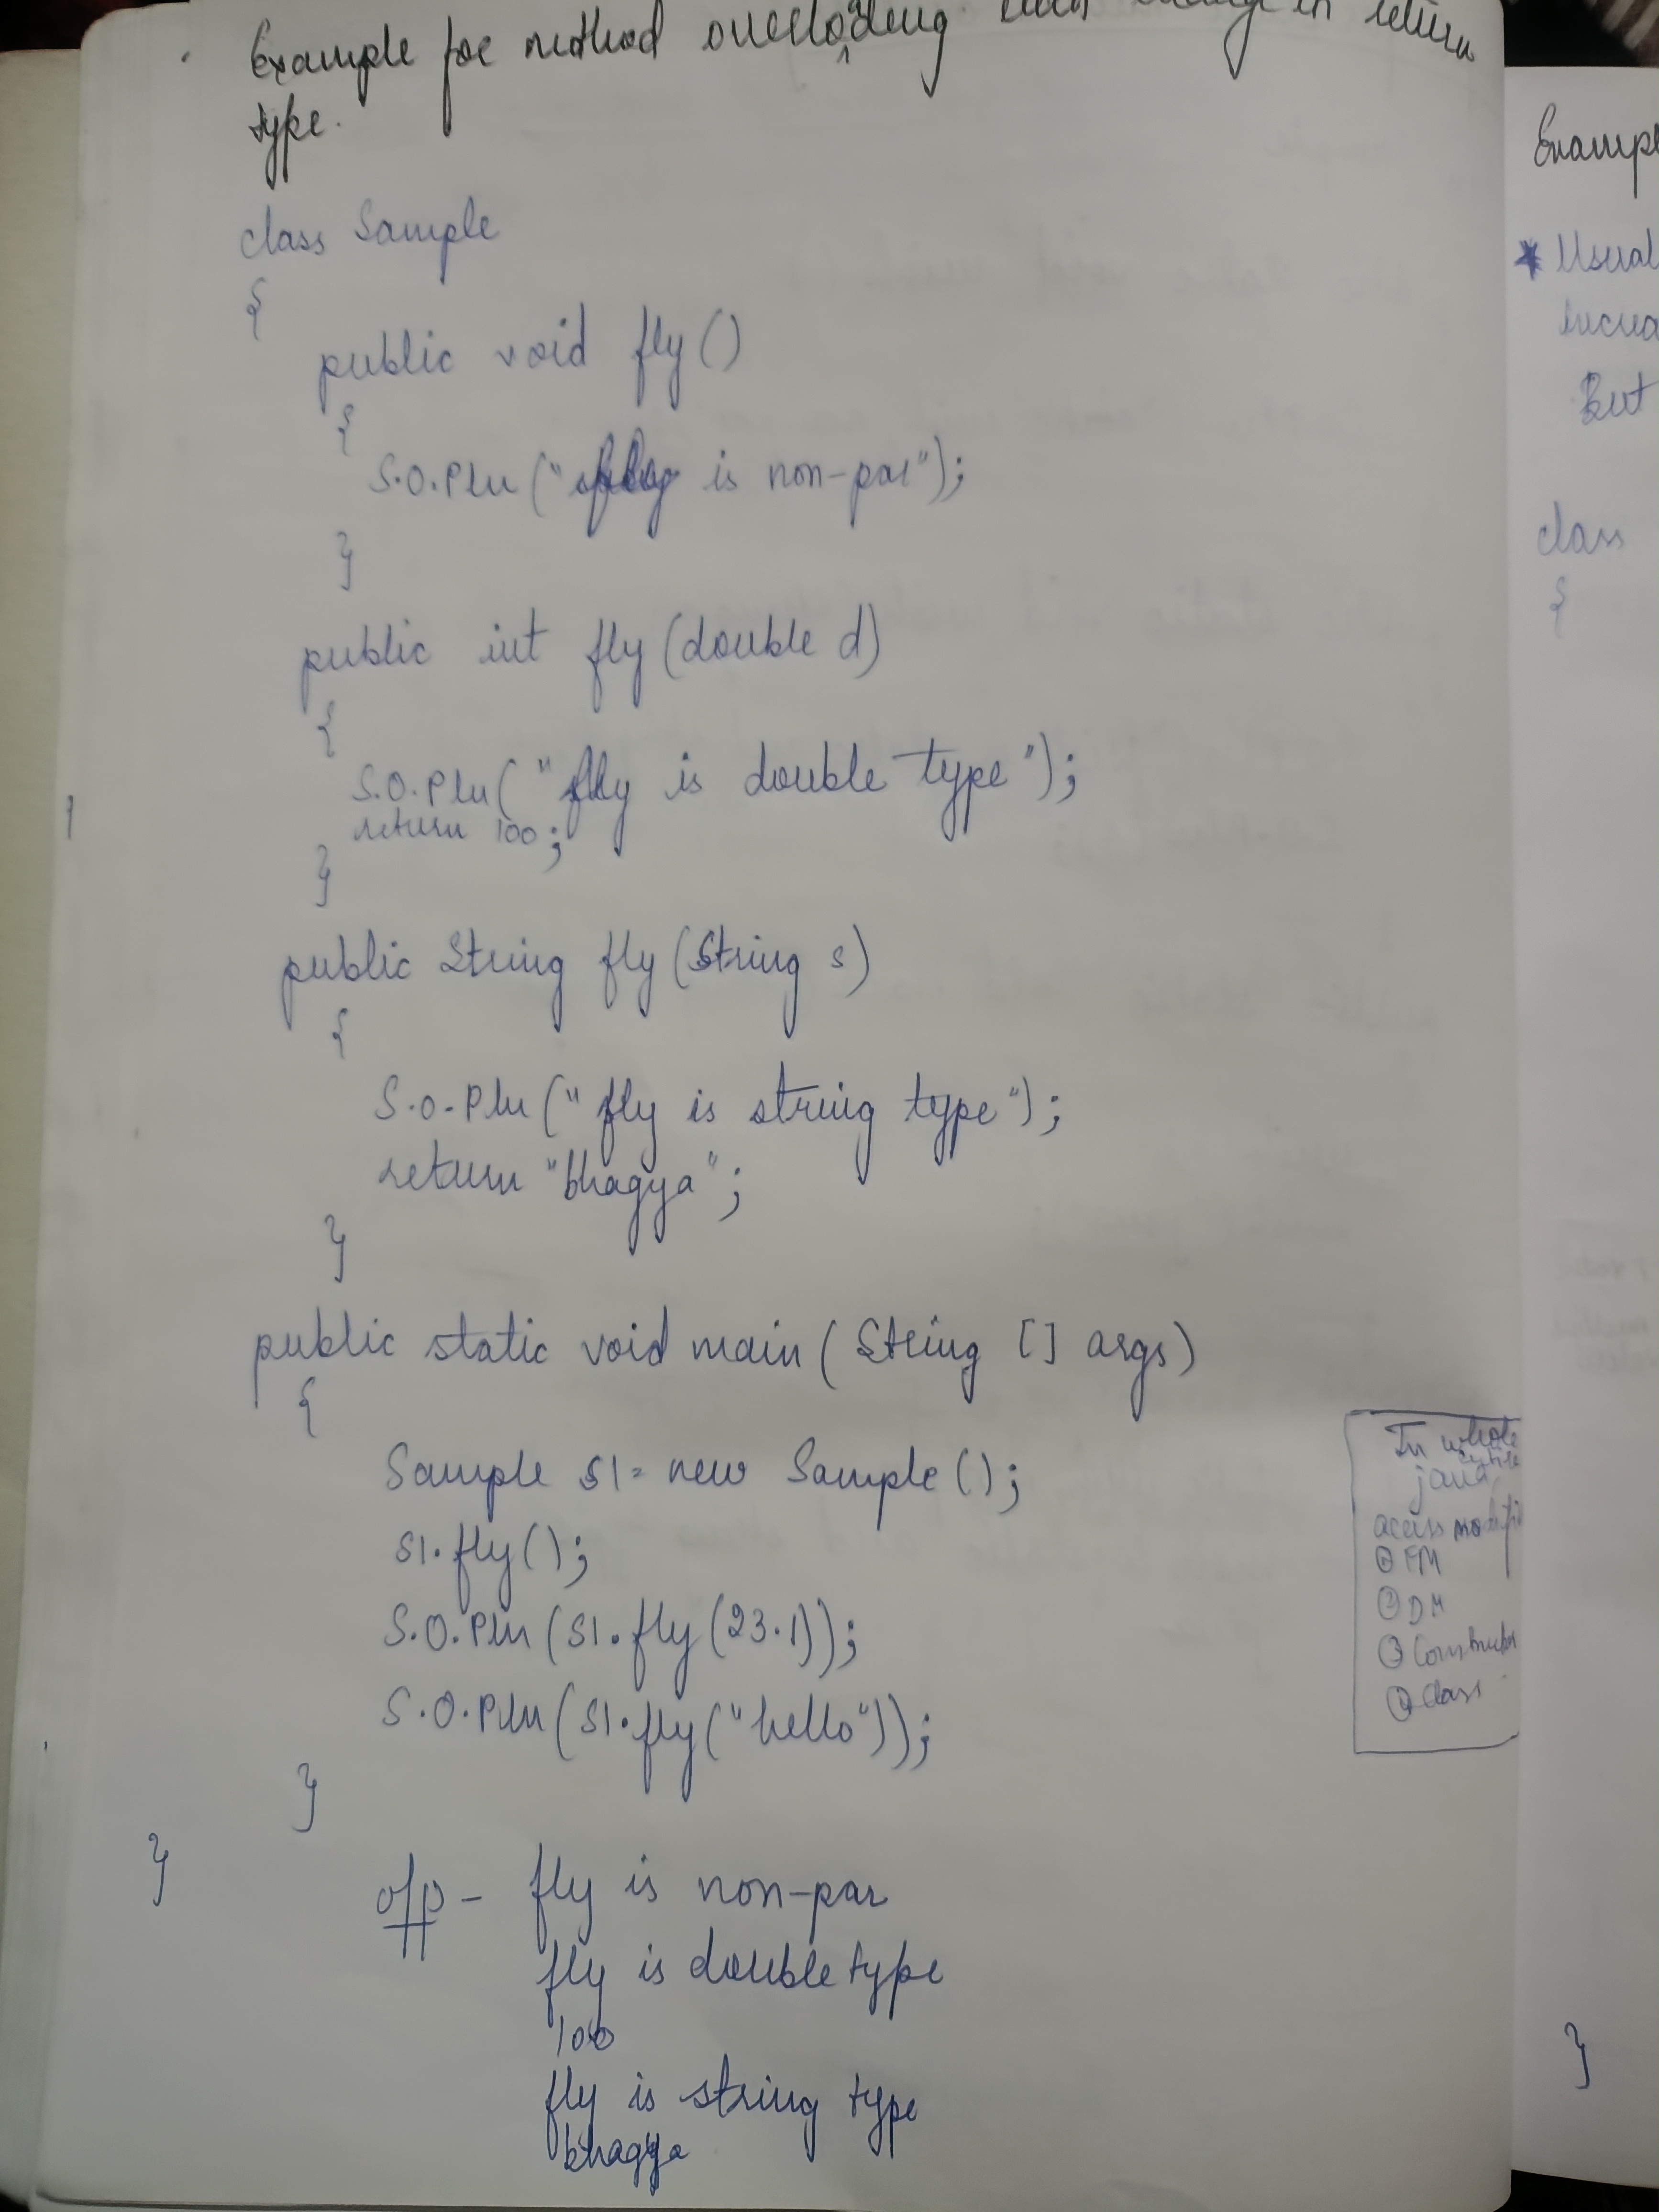 Example for method overloading with change in return
type.
class Sample
{
public void fly()
{
S.O.Pln("fly is non-par");
}
public int fly(double d)
{
S.O.Pln("fly is double type");
return 100;
}
public String fly(String s)
{
S.O.Pln("fly is string type");
return "bhagya";
}
public static void main(String [] args)
{
Sample s1= new Sample();
s1.fly();
S.O.Pln(s1.fly(23.1));
S.O.Pln(s1.fly("hello"));
}
}
o/p - fly is non-par
fly is double type
100
fly is string type
bhagya
In whole
java
access
① FM
② DM
③
④ class
★ Usual
But
class
{
}